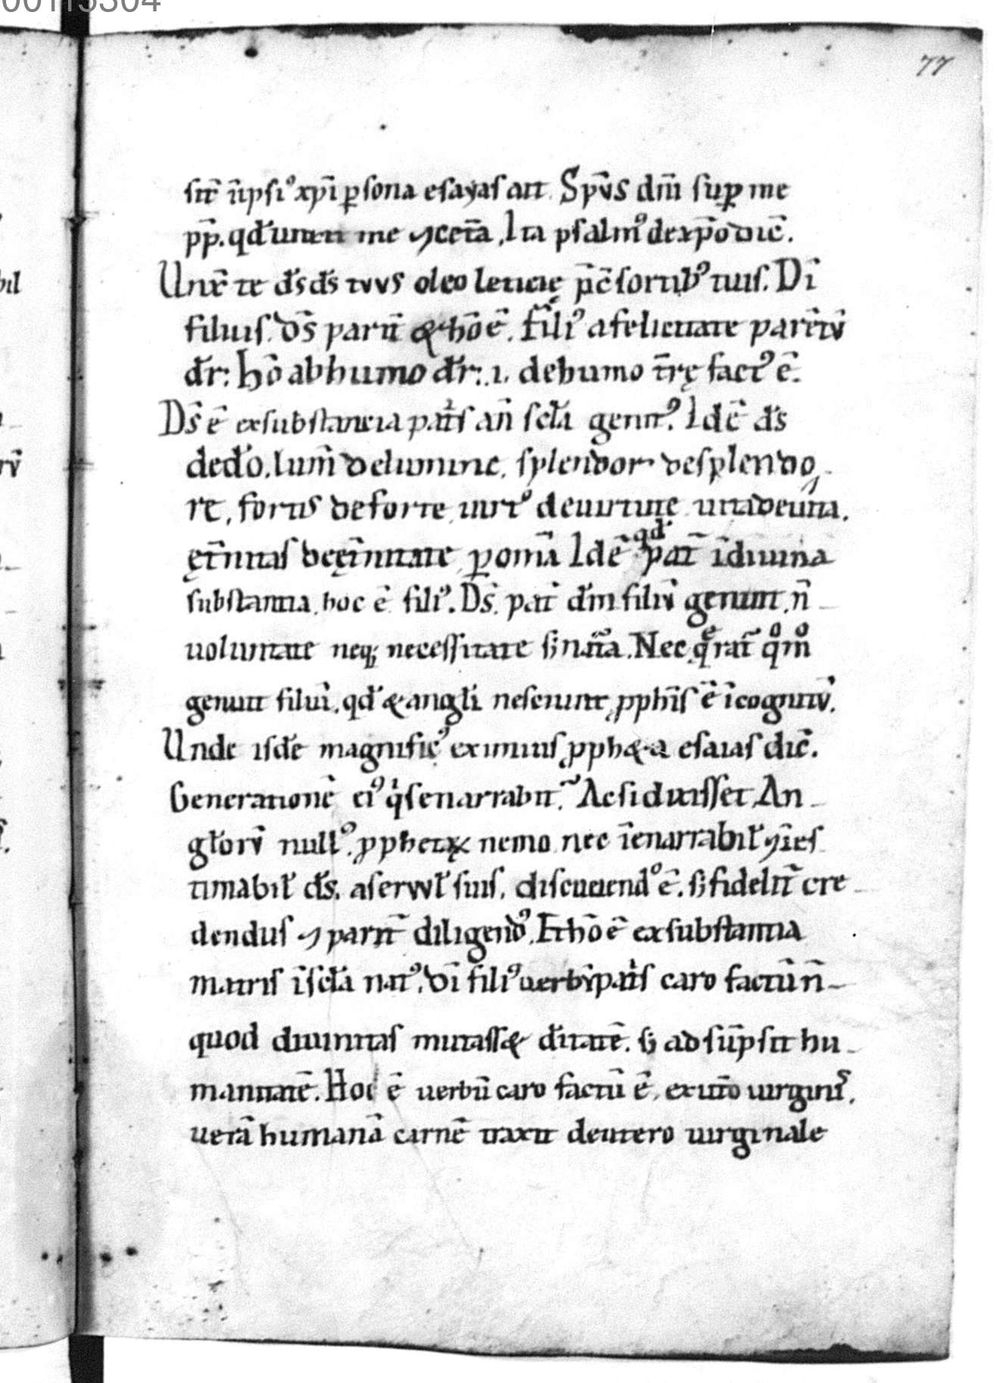 77
sic̄ iīpsiꝰ xp̄i ꝑsona esayas ait. Sp̄vs dn̄i suꝑ me
pp̄. qd̄ unxit me ⁊ceta, Ita psalmꝰ de xp̄o dic̄.
Unx̄ te d̄s d̄s tuus oleo leticię p̄c̄sortibꝰ tuis. Di
filius. Ds̄ parit̄ & hō ē. filiꝰ a felicitate parentū
dr̄: hō ab humo dr̄: .i. de humo tr̄rę factꝰ ē.
Ds̄ ē ex substancia patris an̄ scl̄a genitꝰ. Idē ds̄
de do, lum̄ de lumine, splendor de splendo
re, fortis de forte, uirtꝰ de uirtute, uita de uita,
ęt̄nitas de ęt̄nitate ꝑ om̄ia Idē qd̄ pat̄ i diuina
substantia, hoc ē filiꝰ. Ds̄ pat̄ dm̄ filiū genuit, n̄
uoluntate neq; necessitate s; nat̄a. Nec q̄rat̄ qm̄
genuit filiū, qd̄ & angl̄i nesciunt, ꝓph̄is ē icognitū,
Unde isdē magnificꝰ eximius ꝓph&a esaias dic̄.
Generationē eiꝰ q̇s enarrabit. Ac si dixisset An
gl̄orū nullꝰ. ꝓphetaꝝ nemo nec īenarrabil̄ ⁊ īes
timabil̄ ds̄. a seruul̄ suis. discuciendꝰ ē. s; fidelit̄ cre
dendus ⁊ parit̄ diligendꝰ. Et hō ē ex substantia
matris ī scl̄a natꝰ, di filiꝰ uerbū patris caro factū n̄
quod diuinitas mutass& dītatē. s; adsūpsit hu
manitatē. Hoc ē uerbū caro factū ē, ex ut̄o uirginis,
uerā humanā carnē traxit de utero uirginale